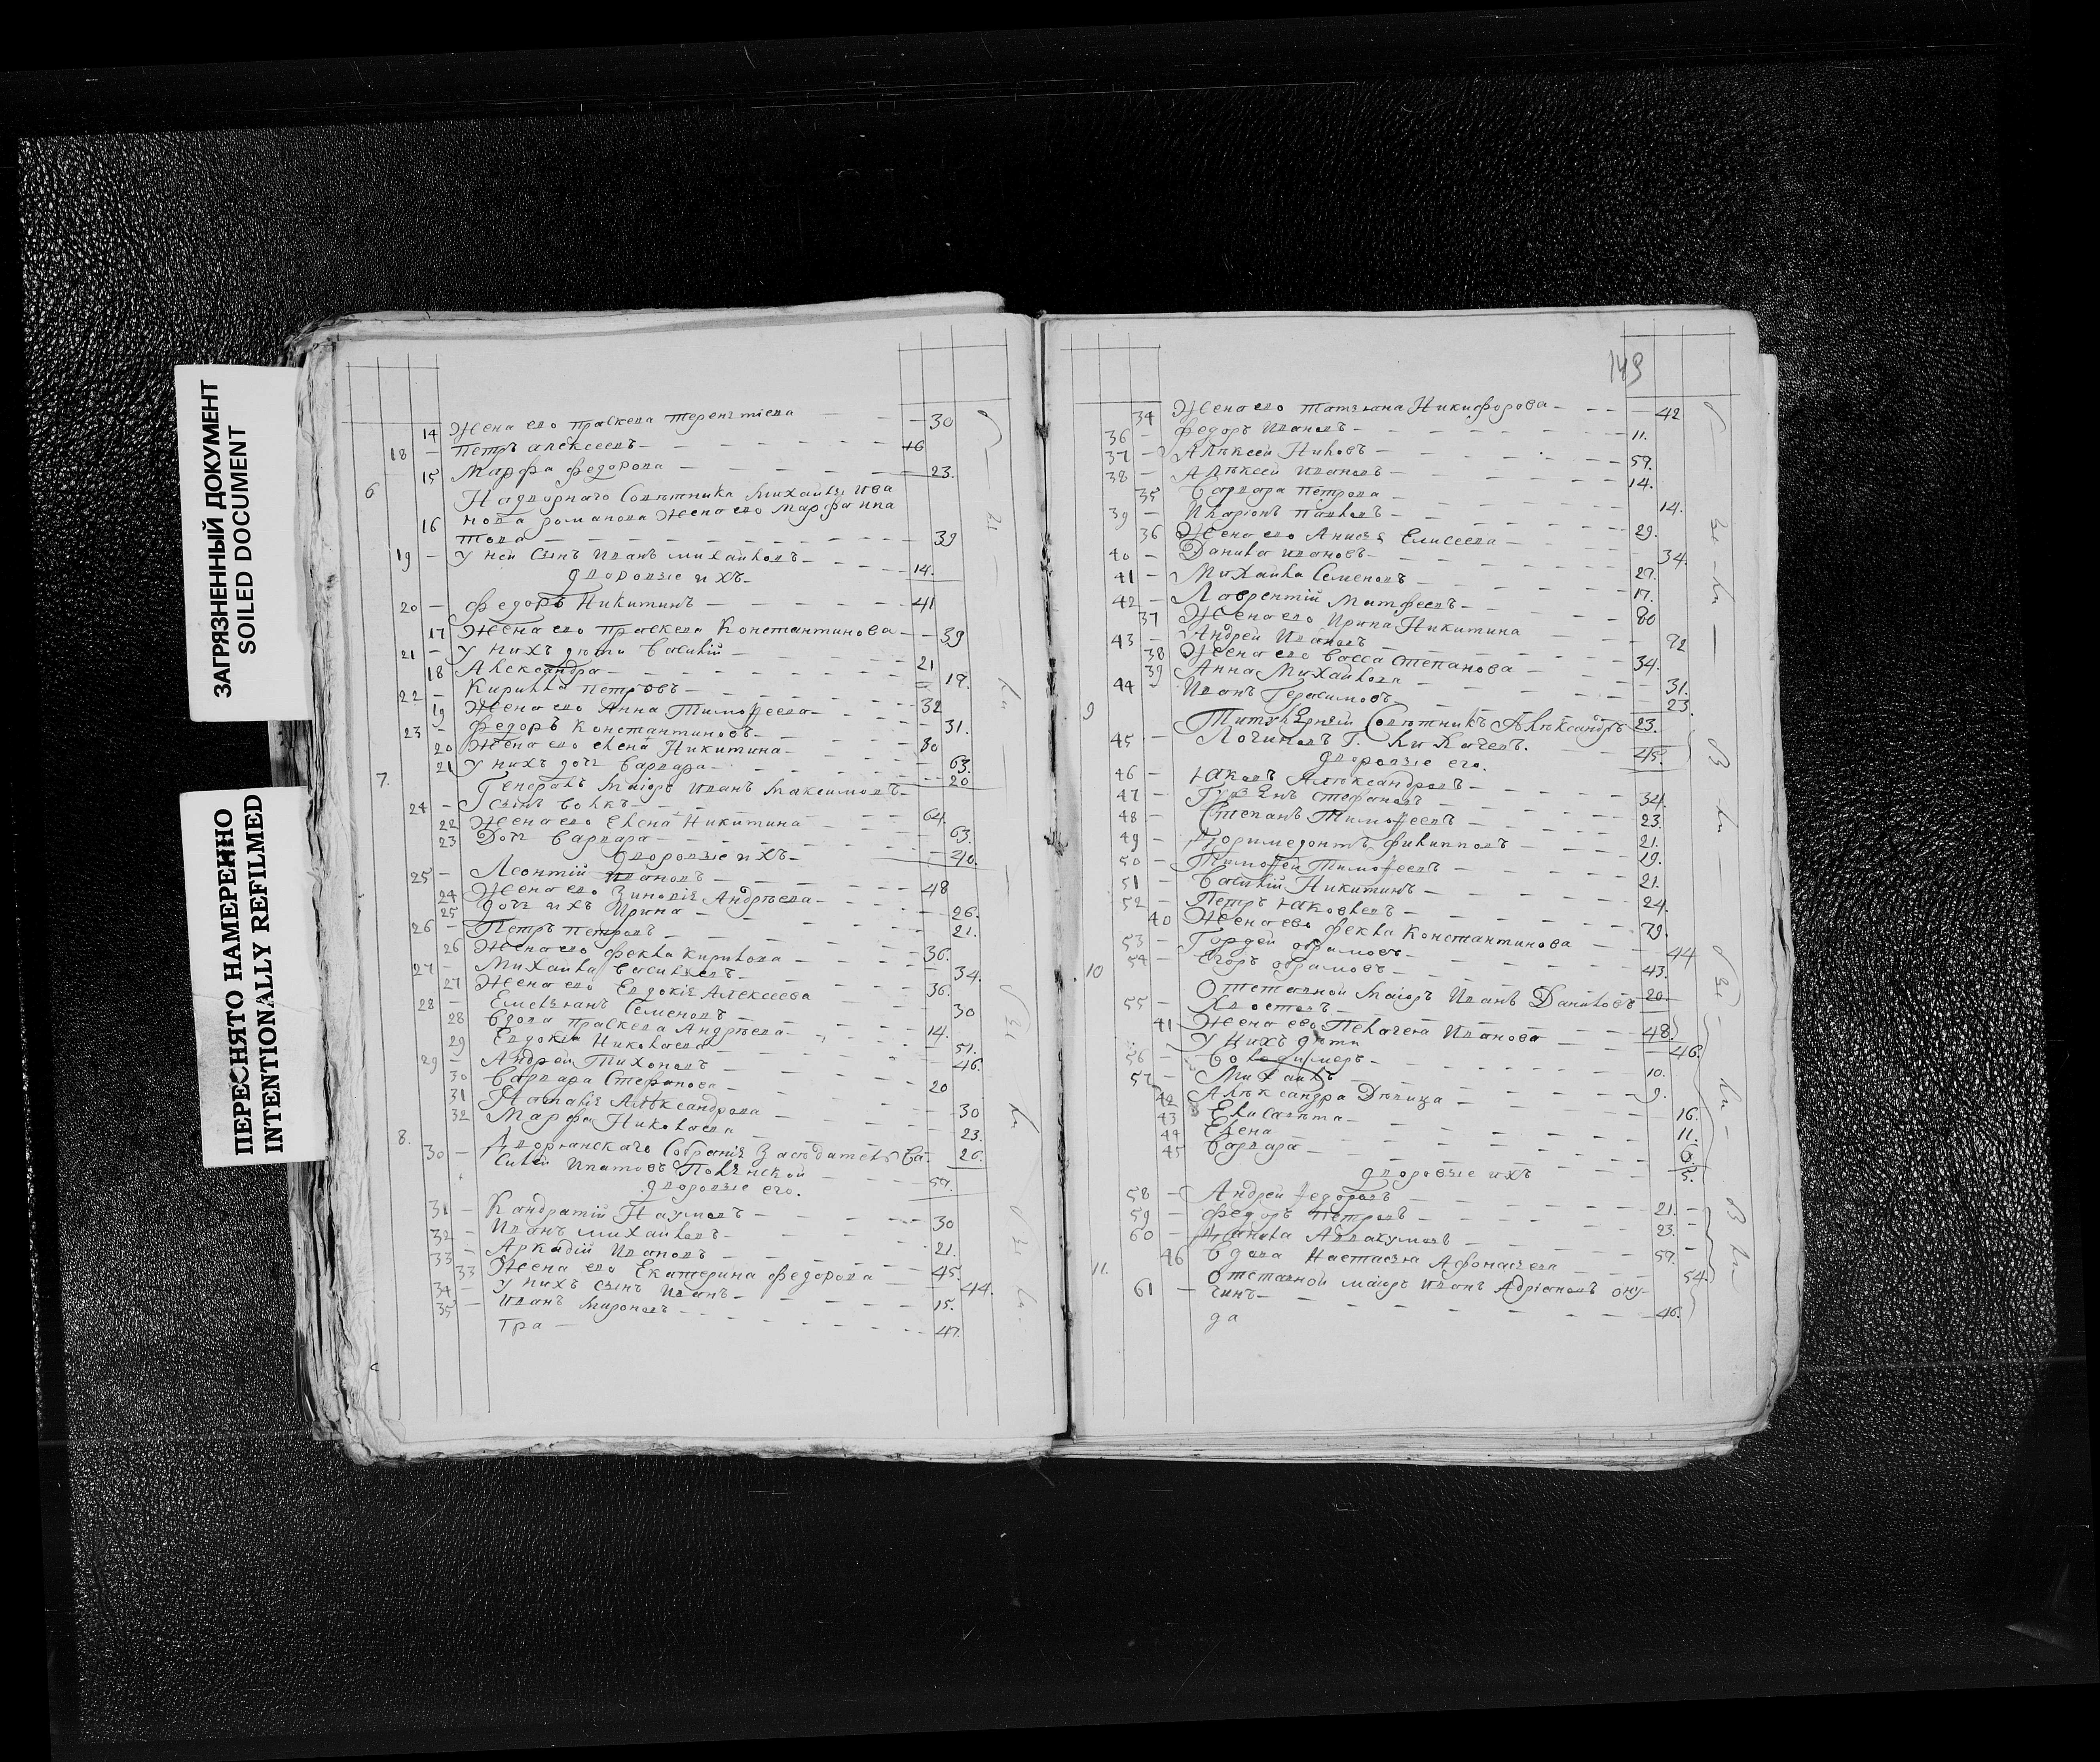 ЗАГРЯЗНЕННЫЙ ДОКУМЕНТ
SOILED DOCUMENT
ПЕРЕСНЯТО НАМЕРЕННО
INTENTIONALLY REFILMED
14 Жена ево праскева терентиева 30
18 Петръ алексеевъ 46
15 Марфа федорова 23.
6 Надворнаго Советника Михаилы Ива
16 нова романова Жена ево Марфа ипа
това 39
19 У ней Сынъ Иванъ михаиловъ 14.
дворовые ихъ
20 федоръ Никитинъ 41
17 Жена ево праскева Константинова 39
21 У нихъ дѣти Василій 21
18 Александра 19.
22 Кирилла петровъ 32
19 Жена ево Анна Тимофеева 31.
23 федоръ Константиновъ 80
20 Жена ево елена Никитина 63.
21 У нихъ дочь Варвара 20
7. Генералъ Маіоръ Иванъ Максимовъ
24 сынъ 64.
22 Жена ево Елена Никитина 63.
23 Дочь Варвара 20.
дворовые ихъ
25 Леонтій Ивановъ 48
24 Жена ево Зиновія Андрѣева 26.
25 дочь ихъ Ирина 21.
26 Петръ петровъ 36.
26 Жена ево фекла Кирилова 34.
27 Михаила Васильевъ 36.
27 Жена ево Евдокія Алексеева 30
28 Емельянъ Семеновъ 14.
28 Вдова праскева Андрѣева 51.
29 Евдокія Николаева 46.
29 Андрей Тихоновъ 20
30 Варвара Стефанова 30
31 Наталія Алѣксандрова 23.
32 Марфа Николаева 26.
8. Дворянскаго Собранія Засѣдатель Ва
30 силей Ипатовъ 57.
дворовые его.
31 Кандратій Наумовъ 30
32 Иванъ михаиловъ 21.
33 Аркадій Ивановъ 45.
33 Жена ево Екатерина федорова 44.
34 У нихъ сынъ Иванъ 15.
35 Иванъ Мироновъ 47.
Гра
149
34 Жена ево татьяна Никифорова 42
36 федоръ Ивановъ 11.
37 Алѣксей 59.
38 Алѣксей Ивановъ 14.
35 Варвара петрова 14.
39 Иларіонъ павловъ 29.
36 Жена ево Анисья Елисеева 34.
40 Данила Ивановъ 27.
41 Михаила Семеновъ 17.
42 Лаврентій Матфеевъ 80
37 Жена ево Ирина Никитина 72
43 Андрей Ивановъ 34.
38 Жена ево Васса Степанова 31.
39 Анна Михаилова 23.
44 Иванъ Герасимовъ 23.
9 Титулярный Советникъ Алѣксандръ
45 45.
дворовые его.
46 Яковъ Алѣксандровъ 34.
47 Стефановъ 23.
48 Степанъ Тимофеевъ 21.
49 филипповъ 19.
50 Тимофей Тимофеевъ 21.
51 Василій Никитинъ 24.
52 Петръ Яковлевъ 79.
40 Жена ево фекла Константинова 44
53 Гордей абрамовъ 43.
54 Егоръ абрамовъ 20.
10 Отставной Маіоръ Иванъ Даниловъ
55 Хвостовъ 48.
41 Жена ево Пелагея Иванова 46.
У Нихъ дѣти
56 Володимеръ 10.
57 Михаилъ 9.
42 Алѣксандра Дѣвица 16.
43 Елисавѣта 11.
44 Елена
45 Варвара 5.
дворовые ихъ
58 Андрей федоровъ 21.
59 федоръ Петровъ 23.
60 Данила Аввакумовъ 57.
46 Вдова Настасья Афонасьева 54.
11. Отставной маіоръ Иванъ Адріановъ
61 46.
да